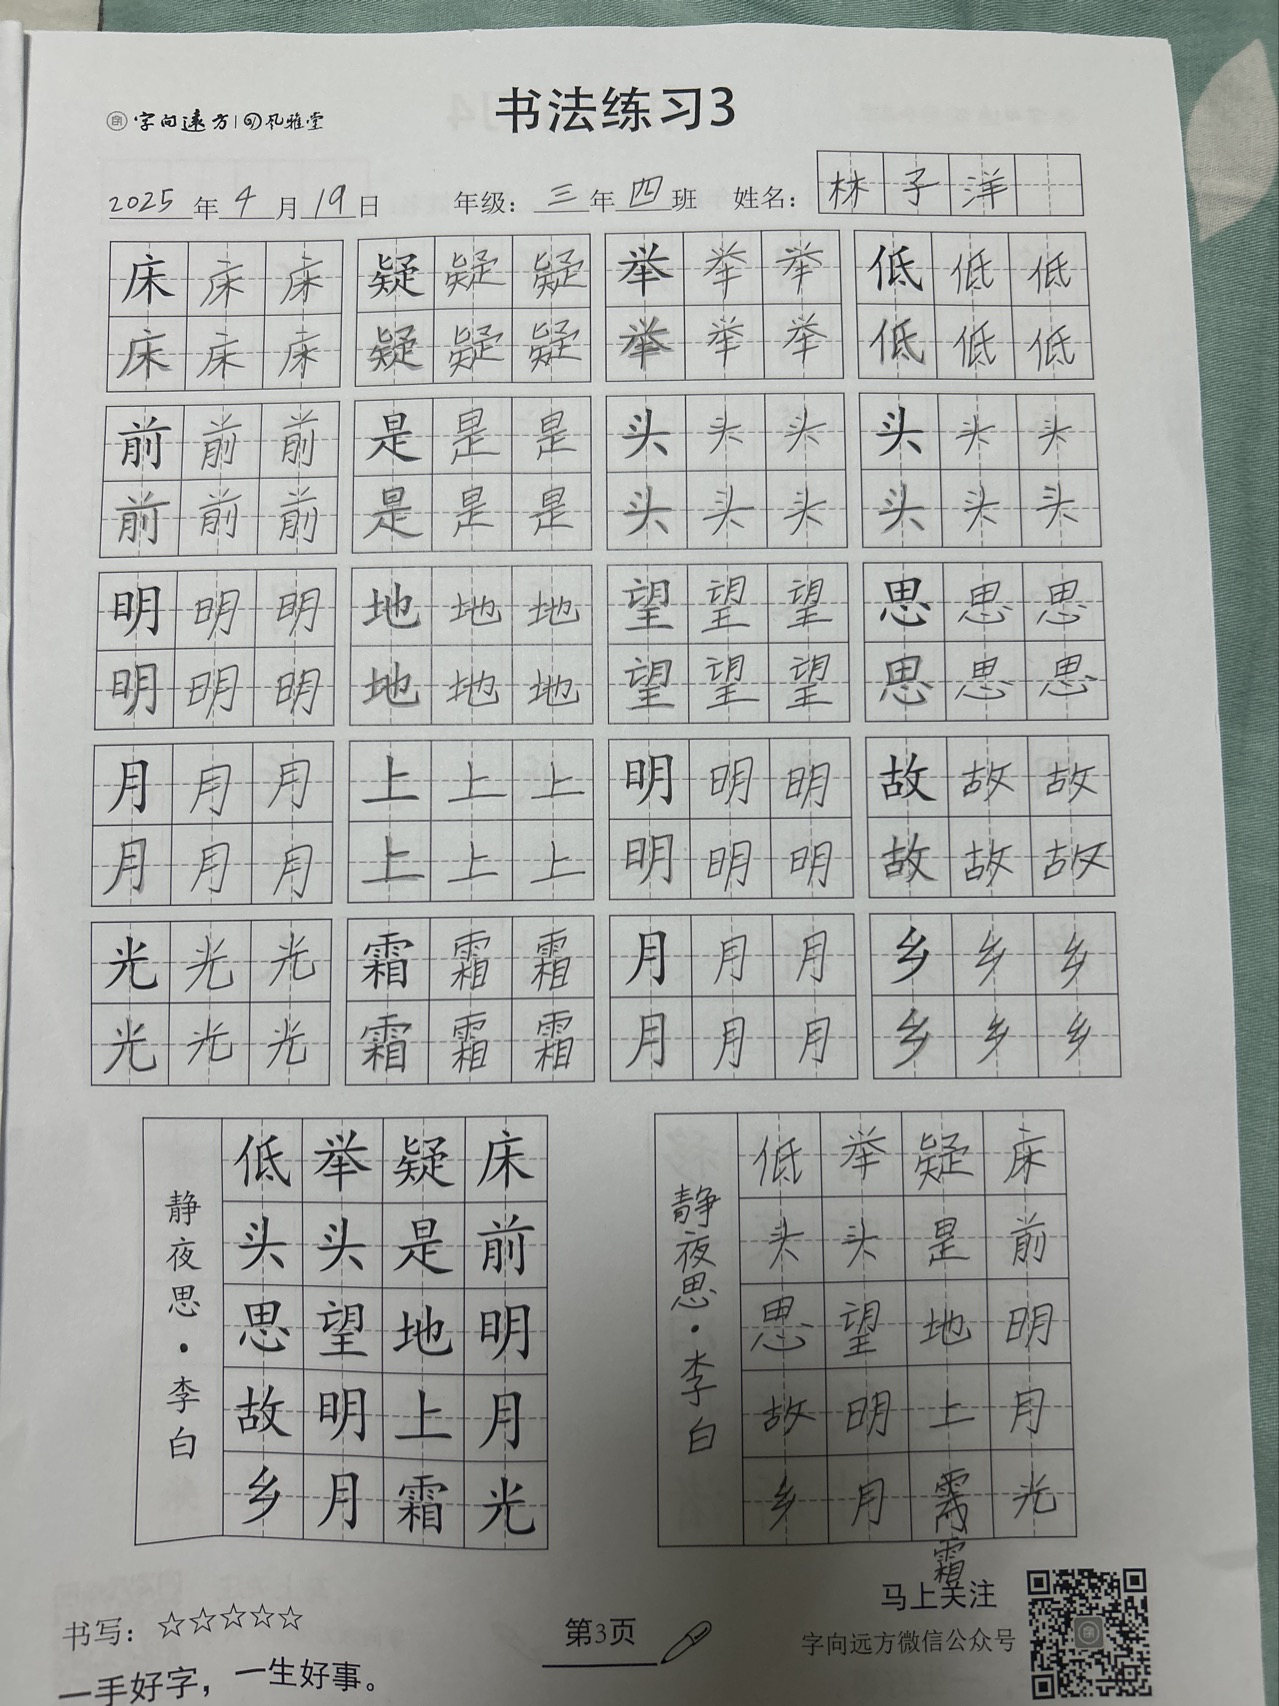 字向远方 风雅堂
书法练习3
2025年4月19日 年级：三年四班 姓名：林子洋
床床床 疑疑疑 举举举 低低低
床床床 疑疑疑 举举举 低低低
前前前 是是是 头头头 头头头
前前前 是是是 头头头 头头头
明明明 地地地 望望望 思思思
明明明 地地地 望望望 思思思
月月月 上上上 明明明 故故故
月月月 上上上 明明明 故故故
光光光 霜霜霜 月月月 乡乡乡
光光光 霜霜霜 月月月 乡乡乡
床前明月光
疑是地上霜
举头望明月
低头思故乡
静夜思·李白
床前明月光
疑是地上
霜
举头望明月
低头思故乡
静夜思·李白
书写：☆☆☆☆☆
一手好字，一生好事。
第3页
马上关注
字向远方微信公众号